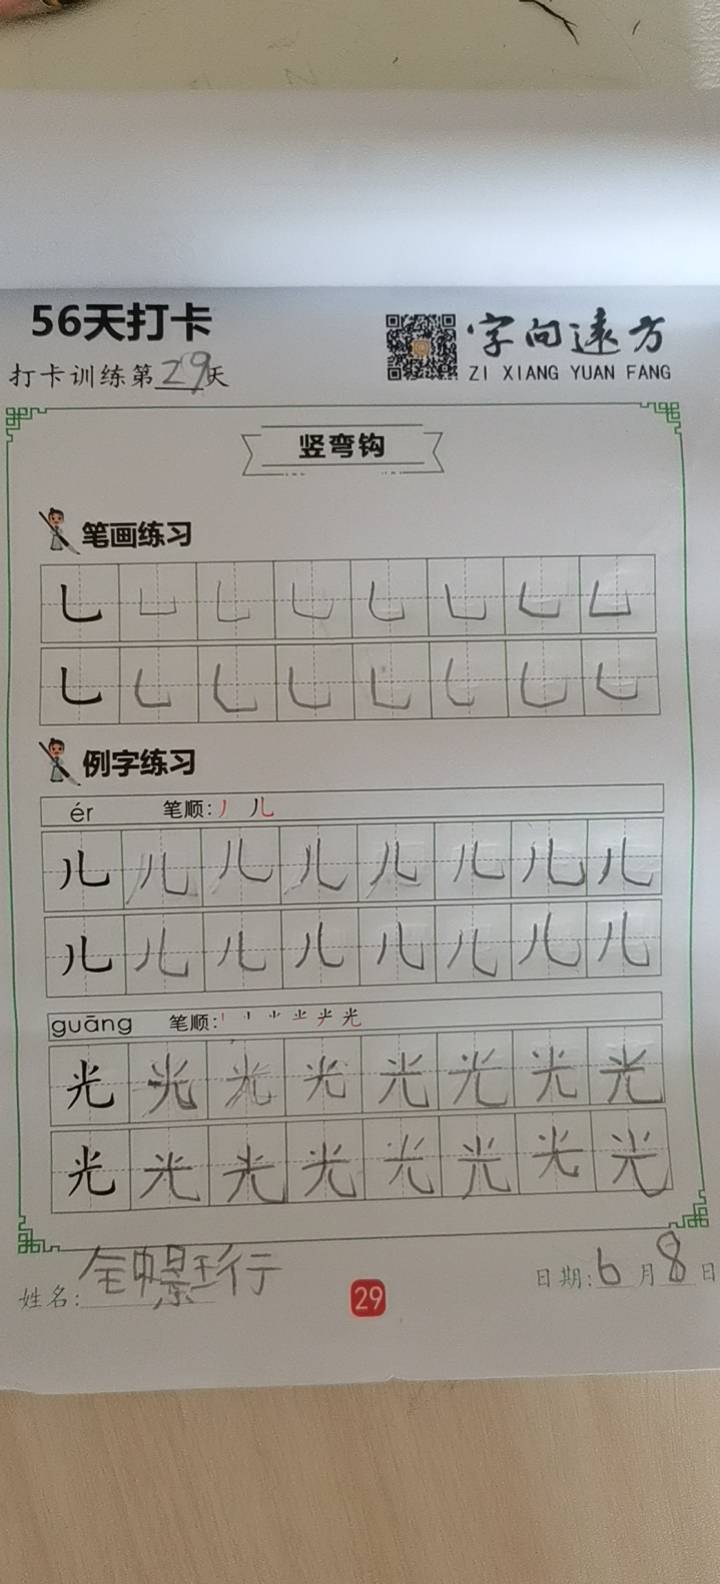 56天打卡
字向遠方
打卡训练第29天
ZI XIANG YUAN FANG
竖弯钩
笔画练习
乚 乚 乚 乚 乚 乚 乚 乚
乚 乚 乚 乚 乚 乚 乚 乚
例字练习
ér 笔顺:丿 儿
儿 儿 儿 儿 儿 儿 儿 儿
儿 儿 儿 儿 儿 儿 儿 儿
guāng 笔顺:
光 光 光 光 光 光 光 光
光 光 光 光 光 光 光 光
姓名: 行
29
日期:6月8日